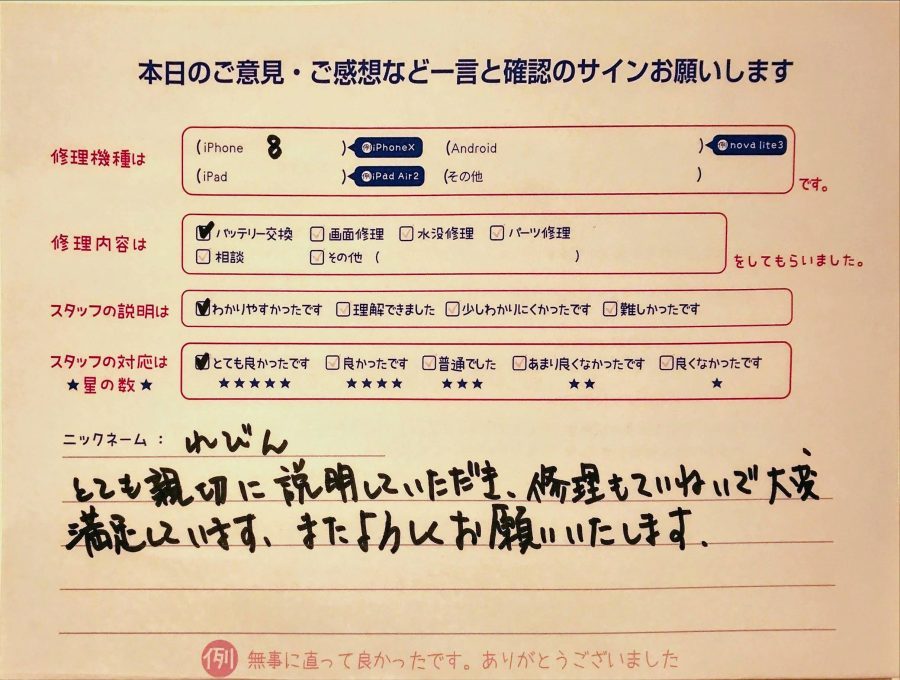 本日のご意見・ご感想など一言と確認のサインお願いします
修理機種は (iPhone 8 ) 例iPhoneX (Android ) 例nova lite3
(iPad ) 例iPad Air2 (その他 ) です。
修理内容は バッテリー交換 画面修理 水没修理 パーツ修理
相談 その他 ( ) をしてもらいました。
スタッフの説明は わかりやすかったです 理解できました 少しわかりにくかったです 難しかったです
スタッフの対応は とても良かったです 良かったです 普通でした あまり良くなかったです 良くなかったです
★星の数★ ★★★★★ ★★★★ ★★★ ★★ ★
ニックネーム： れびん
とても親切に説明していただき、修理もていねいで大変
満足しています、またよろしくお願いいたします.
例 無事に直って良かったです。ありがとうございました